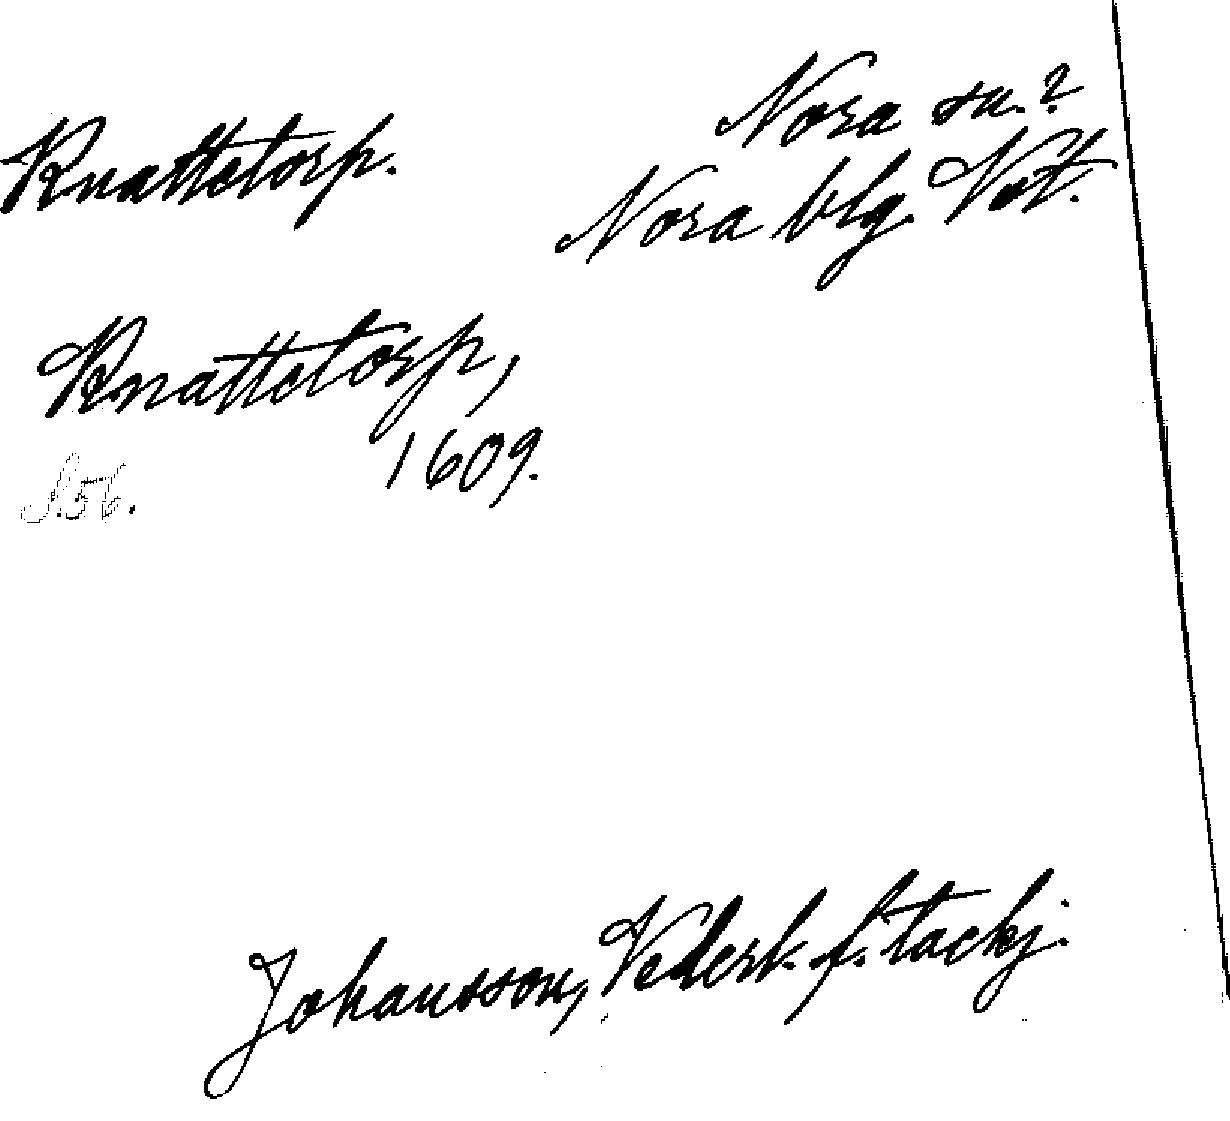 Knattetorp.
Nora sn.?
Nora blg. Vst.
Knattetorp,
1609.
Johansson, Vedersk. f. tackj.